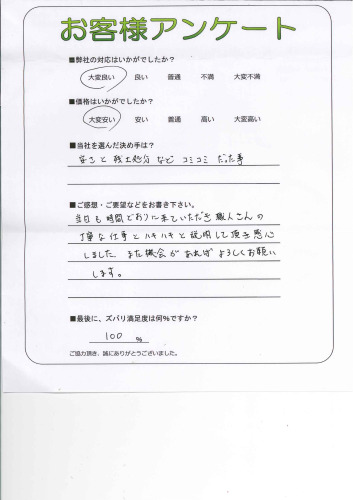 お客様アンケート
■弊社の対応はいかがでしたか?
大変良い 良い 普通 不満 大変不満
■価格はいかがでしたか?
大変安い 安い 普通 高い 大変高い
■当社を選んだ決め手は?
安さと残土処分など コミコミ だった事
■ご感想・ご要望などをお書き下さい。
当日も時間どおりに来ていただき職人さんの
丁寧な仕事とハキハキと説明して頂き感心
しました また機会があればよろしくお願い
します。
■最後に、ズバリ満足度は何%ですか?
100 %
ご協力頂き、誠にありがとうございました。